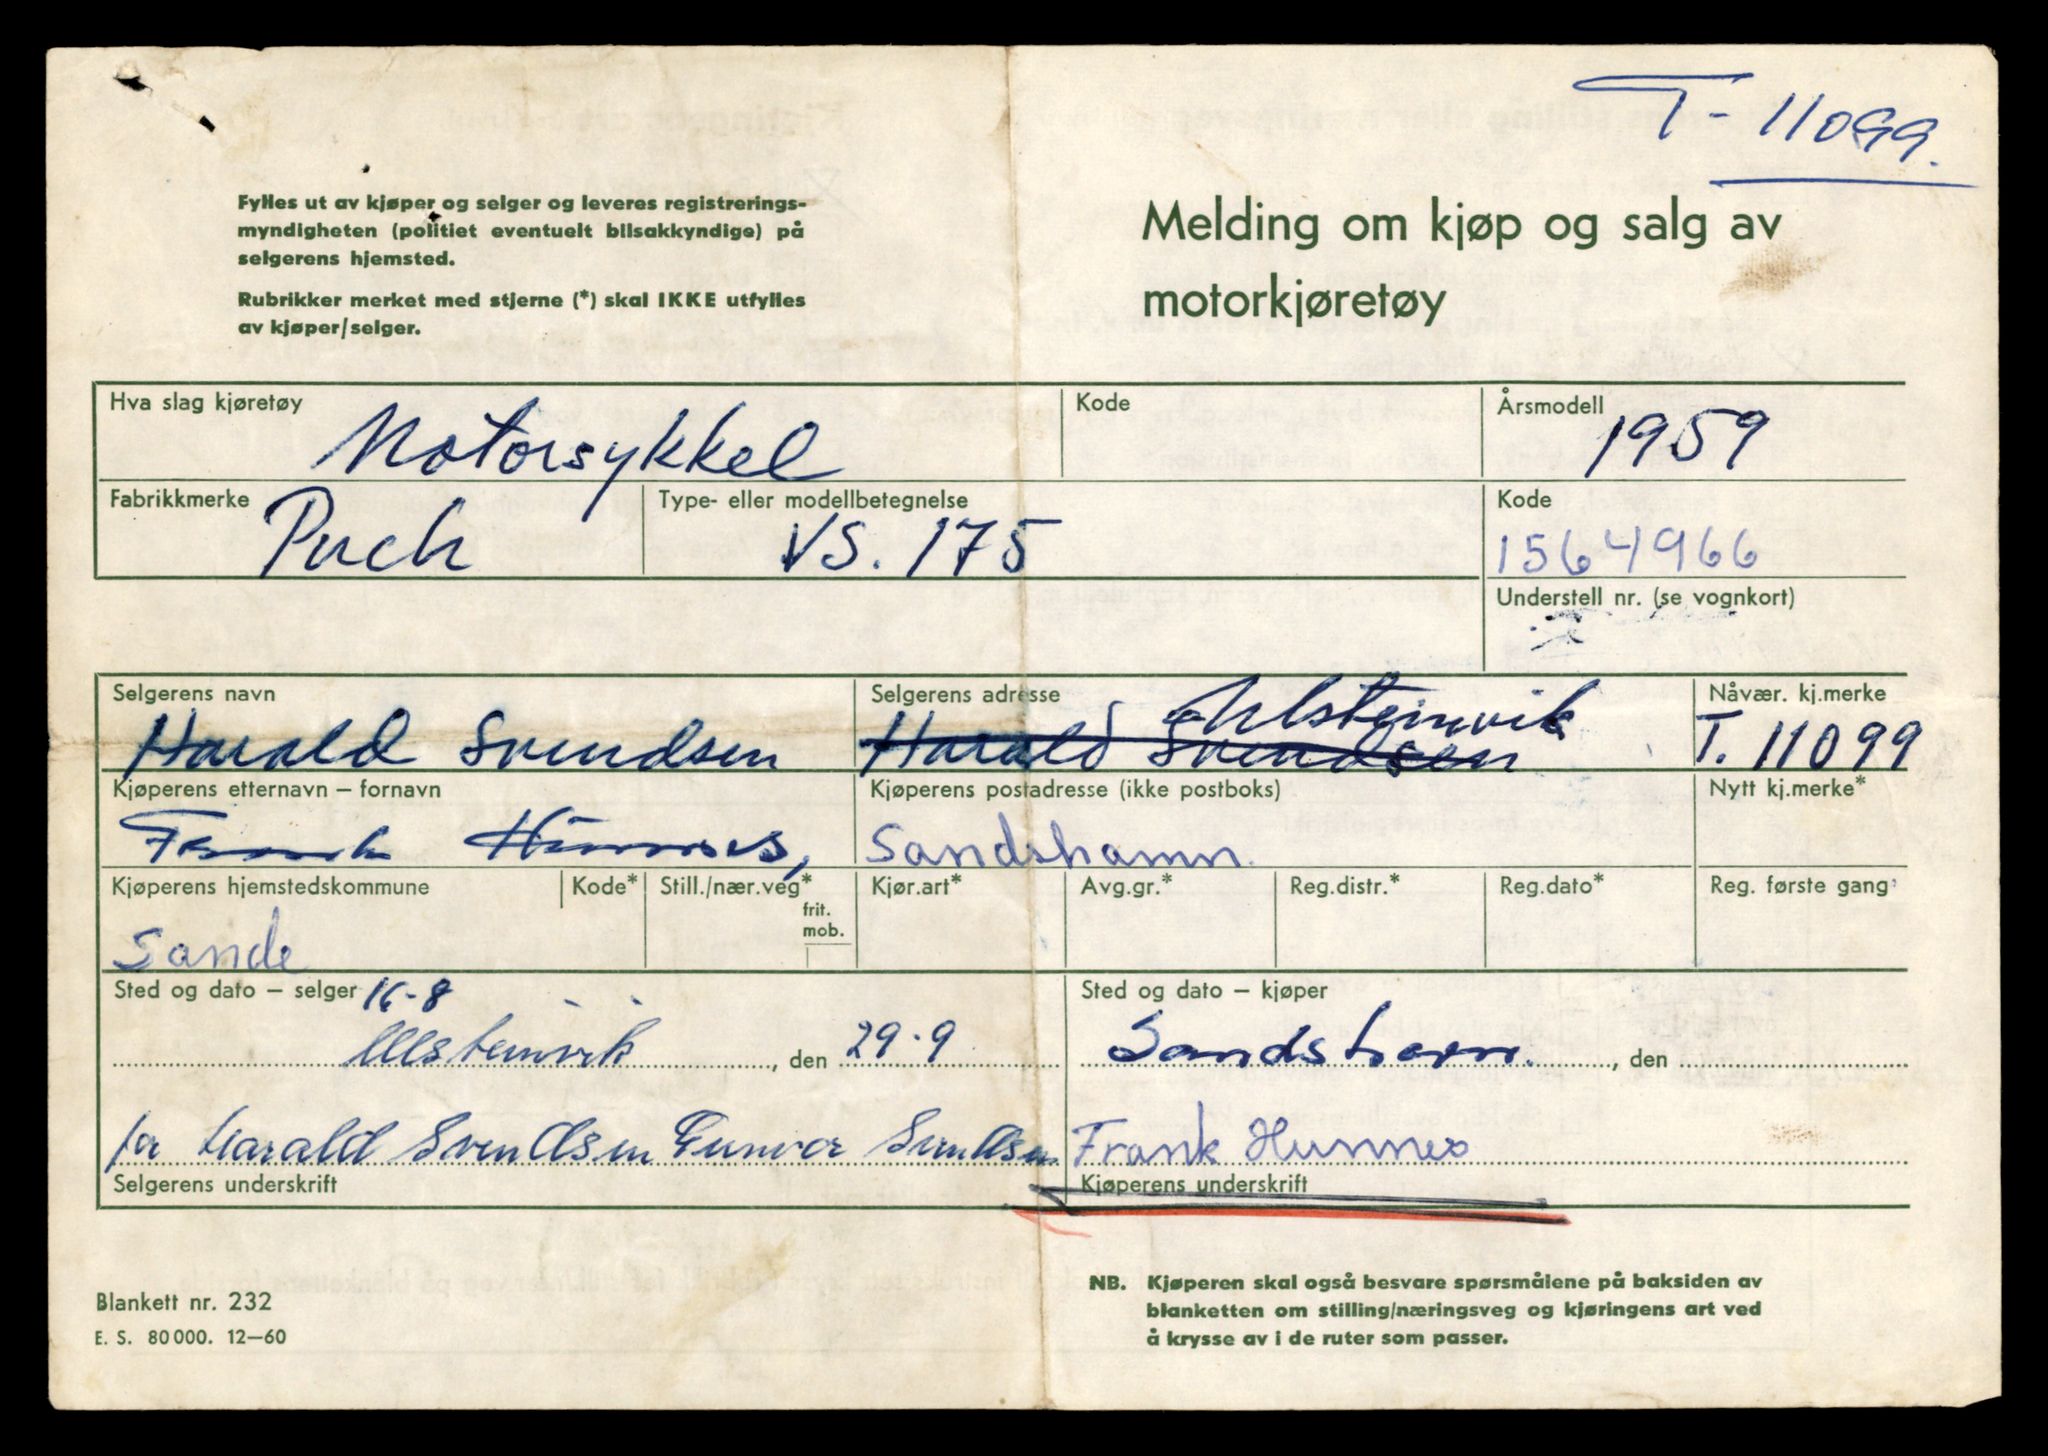 T-11099.
Fylles ut av kjøper og selger og leveres registrerings-
myndigheten (politiet eventuelt bilsakkyndige) på
selgerens hjemsted.
Rubrikker merket med stjerne (*) skal IKKE utfylles
av kjøper/selger.
Melding om kjøp og salg av
motorkjøretøy
Hva slag kjøretøy
Motorsykkel
Kode
Årsmodell
1959
Fabrikkmerke
Puch
Type- eller modellbetegnelse
VS. 175
Kode
1564966
Understell nr. (se vognkort)
Selgerens navn
Harald Svendsen
Selgerens adresse
Ulsteinvik
Harald Svendsen
Nåvær. kj.merke
T. 11099
Kjøperens etternavn – fornavn
Frank Hunnes,
Kjøperens postadresse (ikke postboks)
Sandshamn
Nytt kj.merke*
Kjøperens hjemstedskommune
Sande
Kode*
Still./nær.veg*
frit.
mob.
Kjør.art*
Avg.gr.*
Reg.distr.*
Reg.dato*
Reg. første gang
Sted og dato – selger
16-8
Ulsteinvik, den 29.9
for Harald Svendsen Gunvor Svendsen
Selgerens underskrift
Sted og dato – kjøper
Sandshavn., den
Frank Hunnes
Kjøperens underskrift
Blankett nr. 232
E. S. 80 000. 12–60
NB. Kjøperen skal også besvare spørsmålene på baksiden av
blanketten om stilling/næringsveg og kjøringens art ved
å krysse av i de ruter som passer.